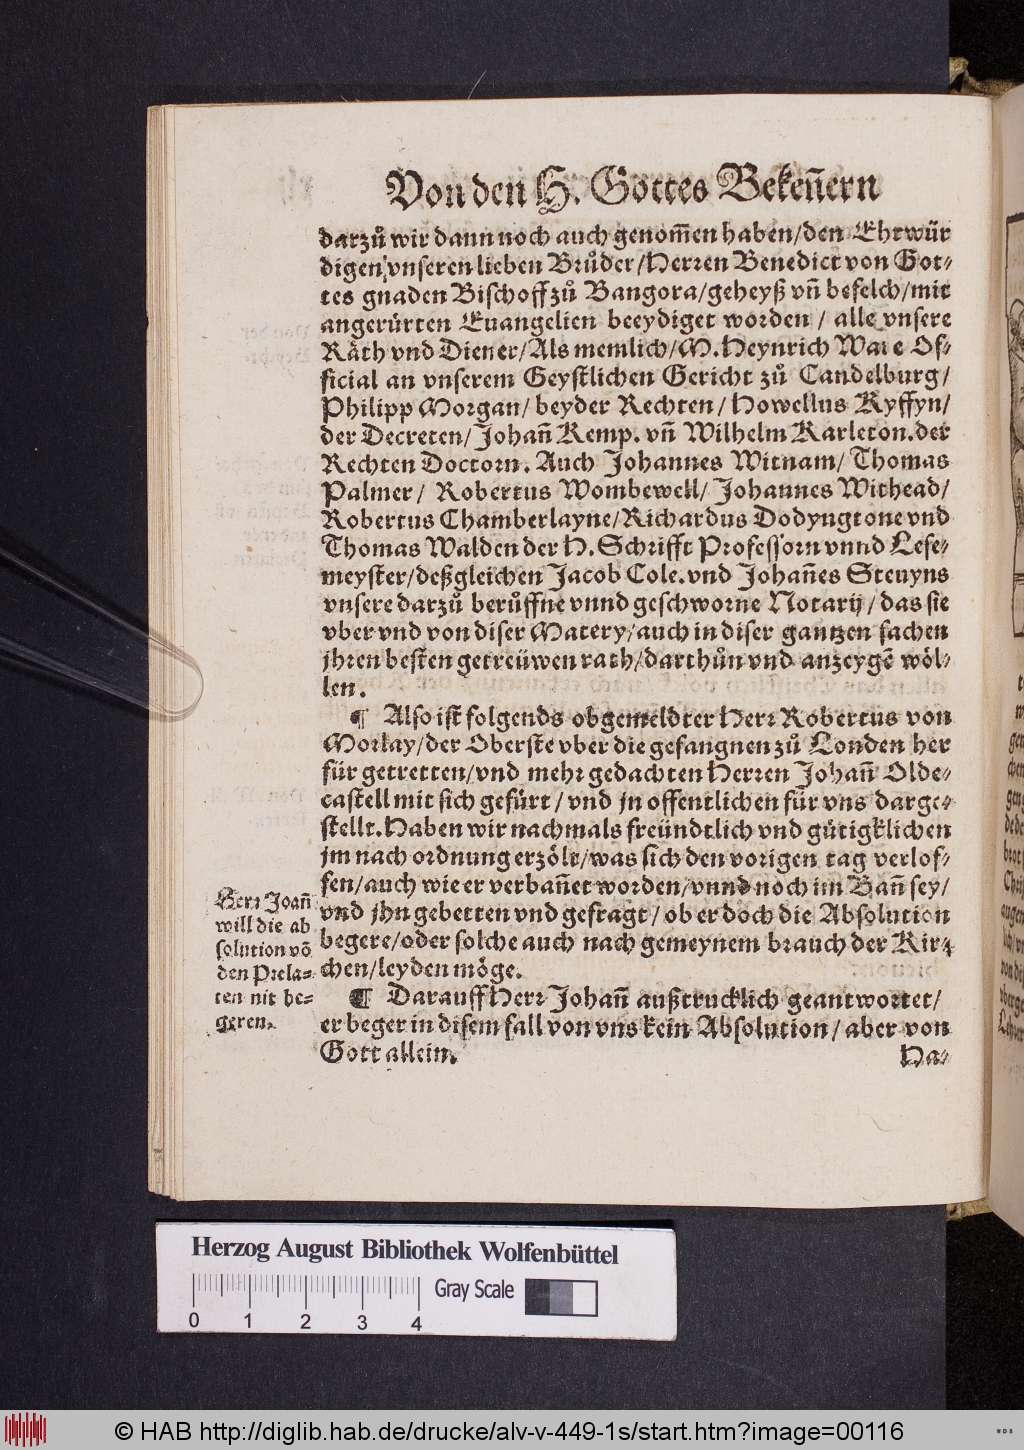 Von den H. Gottes Bekeñern
darzů wir dann noch auch genom̃en haben/den Ehrwür
digen vnseren lieben Brůder/Herren Benedict von Got-
tes gnaden Bischoff zů Bangora/geheyß vñ befelch/mit
angerürten Euangelien beeydiget worden / alle vnsere
Räth vnd Diener/Als memlich/M. Heynrich Ware Of-
ficial an vnserem Geystlichen Gericht zů Candelburg/
Philipp Morgan/ beyder Rechten / Howellus Kyffyn/
der Decreten/ Johañ Kemp. vñ Wilhelm Karleton. der
Rechten Doctorn. Auch Johannes Witnam/ Thomas
Palmer/ Robertus Wombewell/ Johannes Withead/
Robertus Chamberlayne/Richardus Dodyngtone vnd
Thomas Walden der H. Schrifft Professorn vnnd Lese-
meyster/deßgleichen Jacob Cole. vnd Johañes Steuyns
vnsere darzů berůffne vnnd geschworne Notarij / das sie
vber vnd von diser Matery/auch in diser gantzen sachen
jhren besten getreüwen rath/darthůn vnd anzeygē wöl-
len.
¶ Also ist folgends obgemeldter Herr Robertus von
Morlay/der Oberste vber die gefangnen zů Londen her
für getretten/vnd mehr gedachten Herren Johañ Olde-
castell mit sich gefürt / vnd jn offentlichen für vns darge-
stellt. Haben wir nachmals freündtlich vnd gütigklichen
jm nach ordnung erzölt/was sich den vorigen tag verlof-
fen/auch wie er verbañet worden/vnnd noch im Bañ sey/
vnd jhn gebetten vnd gefragt / ob er doch die Absolution
begere/oder solche auch nach gemeynem brauch der Kir-
chen/leyden möge.
¶ Darauff Herr Johañ außtrucklich geantwortet/
er beger in disem fall von vns kein Absolution / aber von
Gott allein.
Ha-
Herr Joañ
will die ab
solution võ
den Prela-
ten nit be-
geren.
Herzog August Bibliothek Wolfenbüttel
Gray Scale
0 1 2 3 4
© HAB http://diglib.hab.de/drucke/alv-v-449-1s/start.htm?image=00116